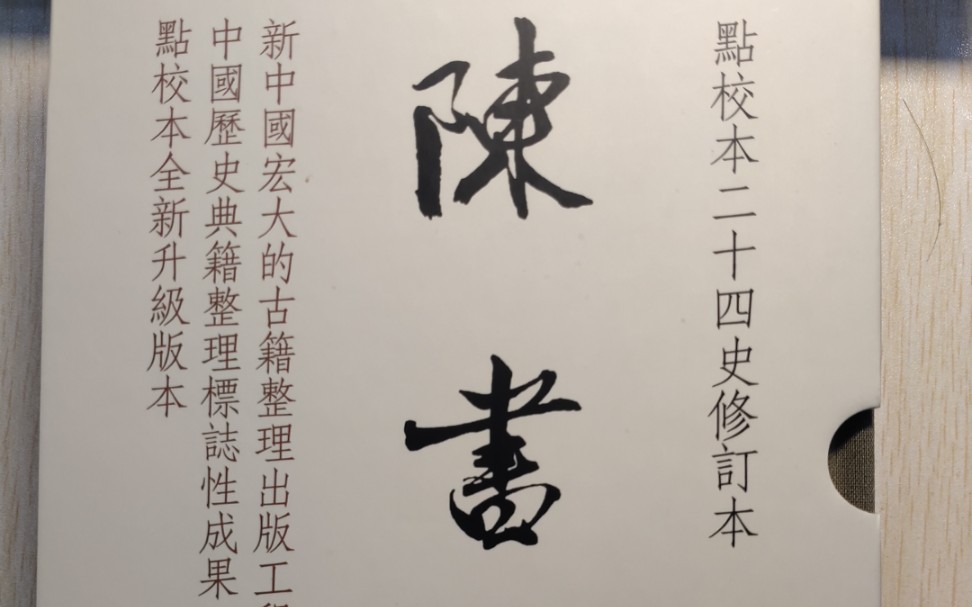 點校本二十四史修訂本
陳書
新中國宏大的古籍整理出版工
中國歷史典籍整理標誌性成果
點校本全新升級版本